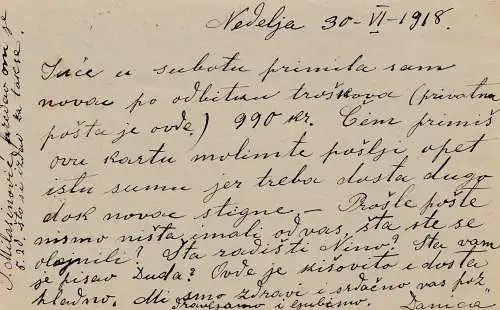 Nedelja 30-VI-1918.
Juče u subotu primila sam
novac po odbitku troškova (privatna
pošta je ovde) 990 kr. Čim primiš
ovu kartu molimte pošlji opet
istu sumu jer treba dosta dugo
dok novac stigne. — Prošle pošte
nismo ništa imali od vas, šta ste se
olenjili? Šta radišti Nino? Šta vam
je pisao Duda? Ovde je kišovito i dosta
hladno. Mi smo zdravi i srdačno vas poz
dravljamo i ljubimo. Danica